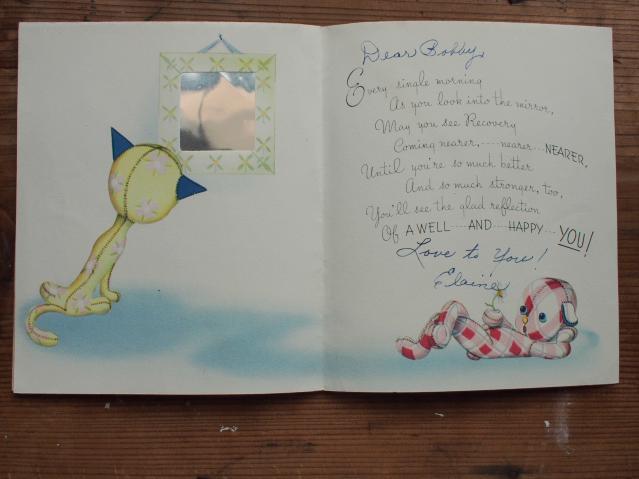 Dear Bobby,
Every single morning
As you look into the mirror,
May you see Recovery
Coming nearer,----nearer---NEARER,
Until you're so much better
And so much stronger, too,
You'll see the glad reflection
Of A WELL---AND---HAPPY---YOU!
Love to You!
Elaine